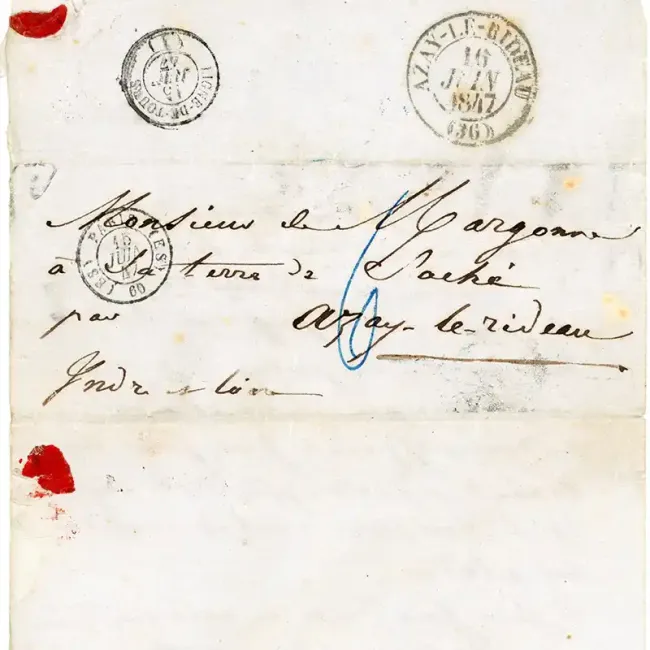 LIGNE-DE-TOURS
JUIN
47
AZAY-LE-RIDEAU
16
JUIN
1847
(36)
Monsieur de Margonne
JUIN
47
60
à La terre de Saché
par azay-le-rideau
Indre et loire
6